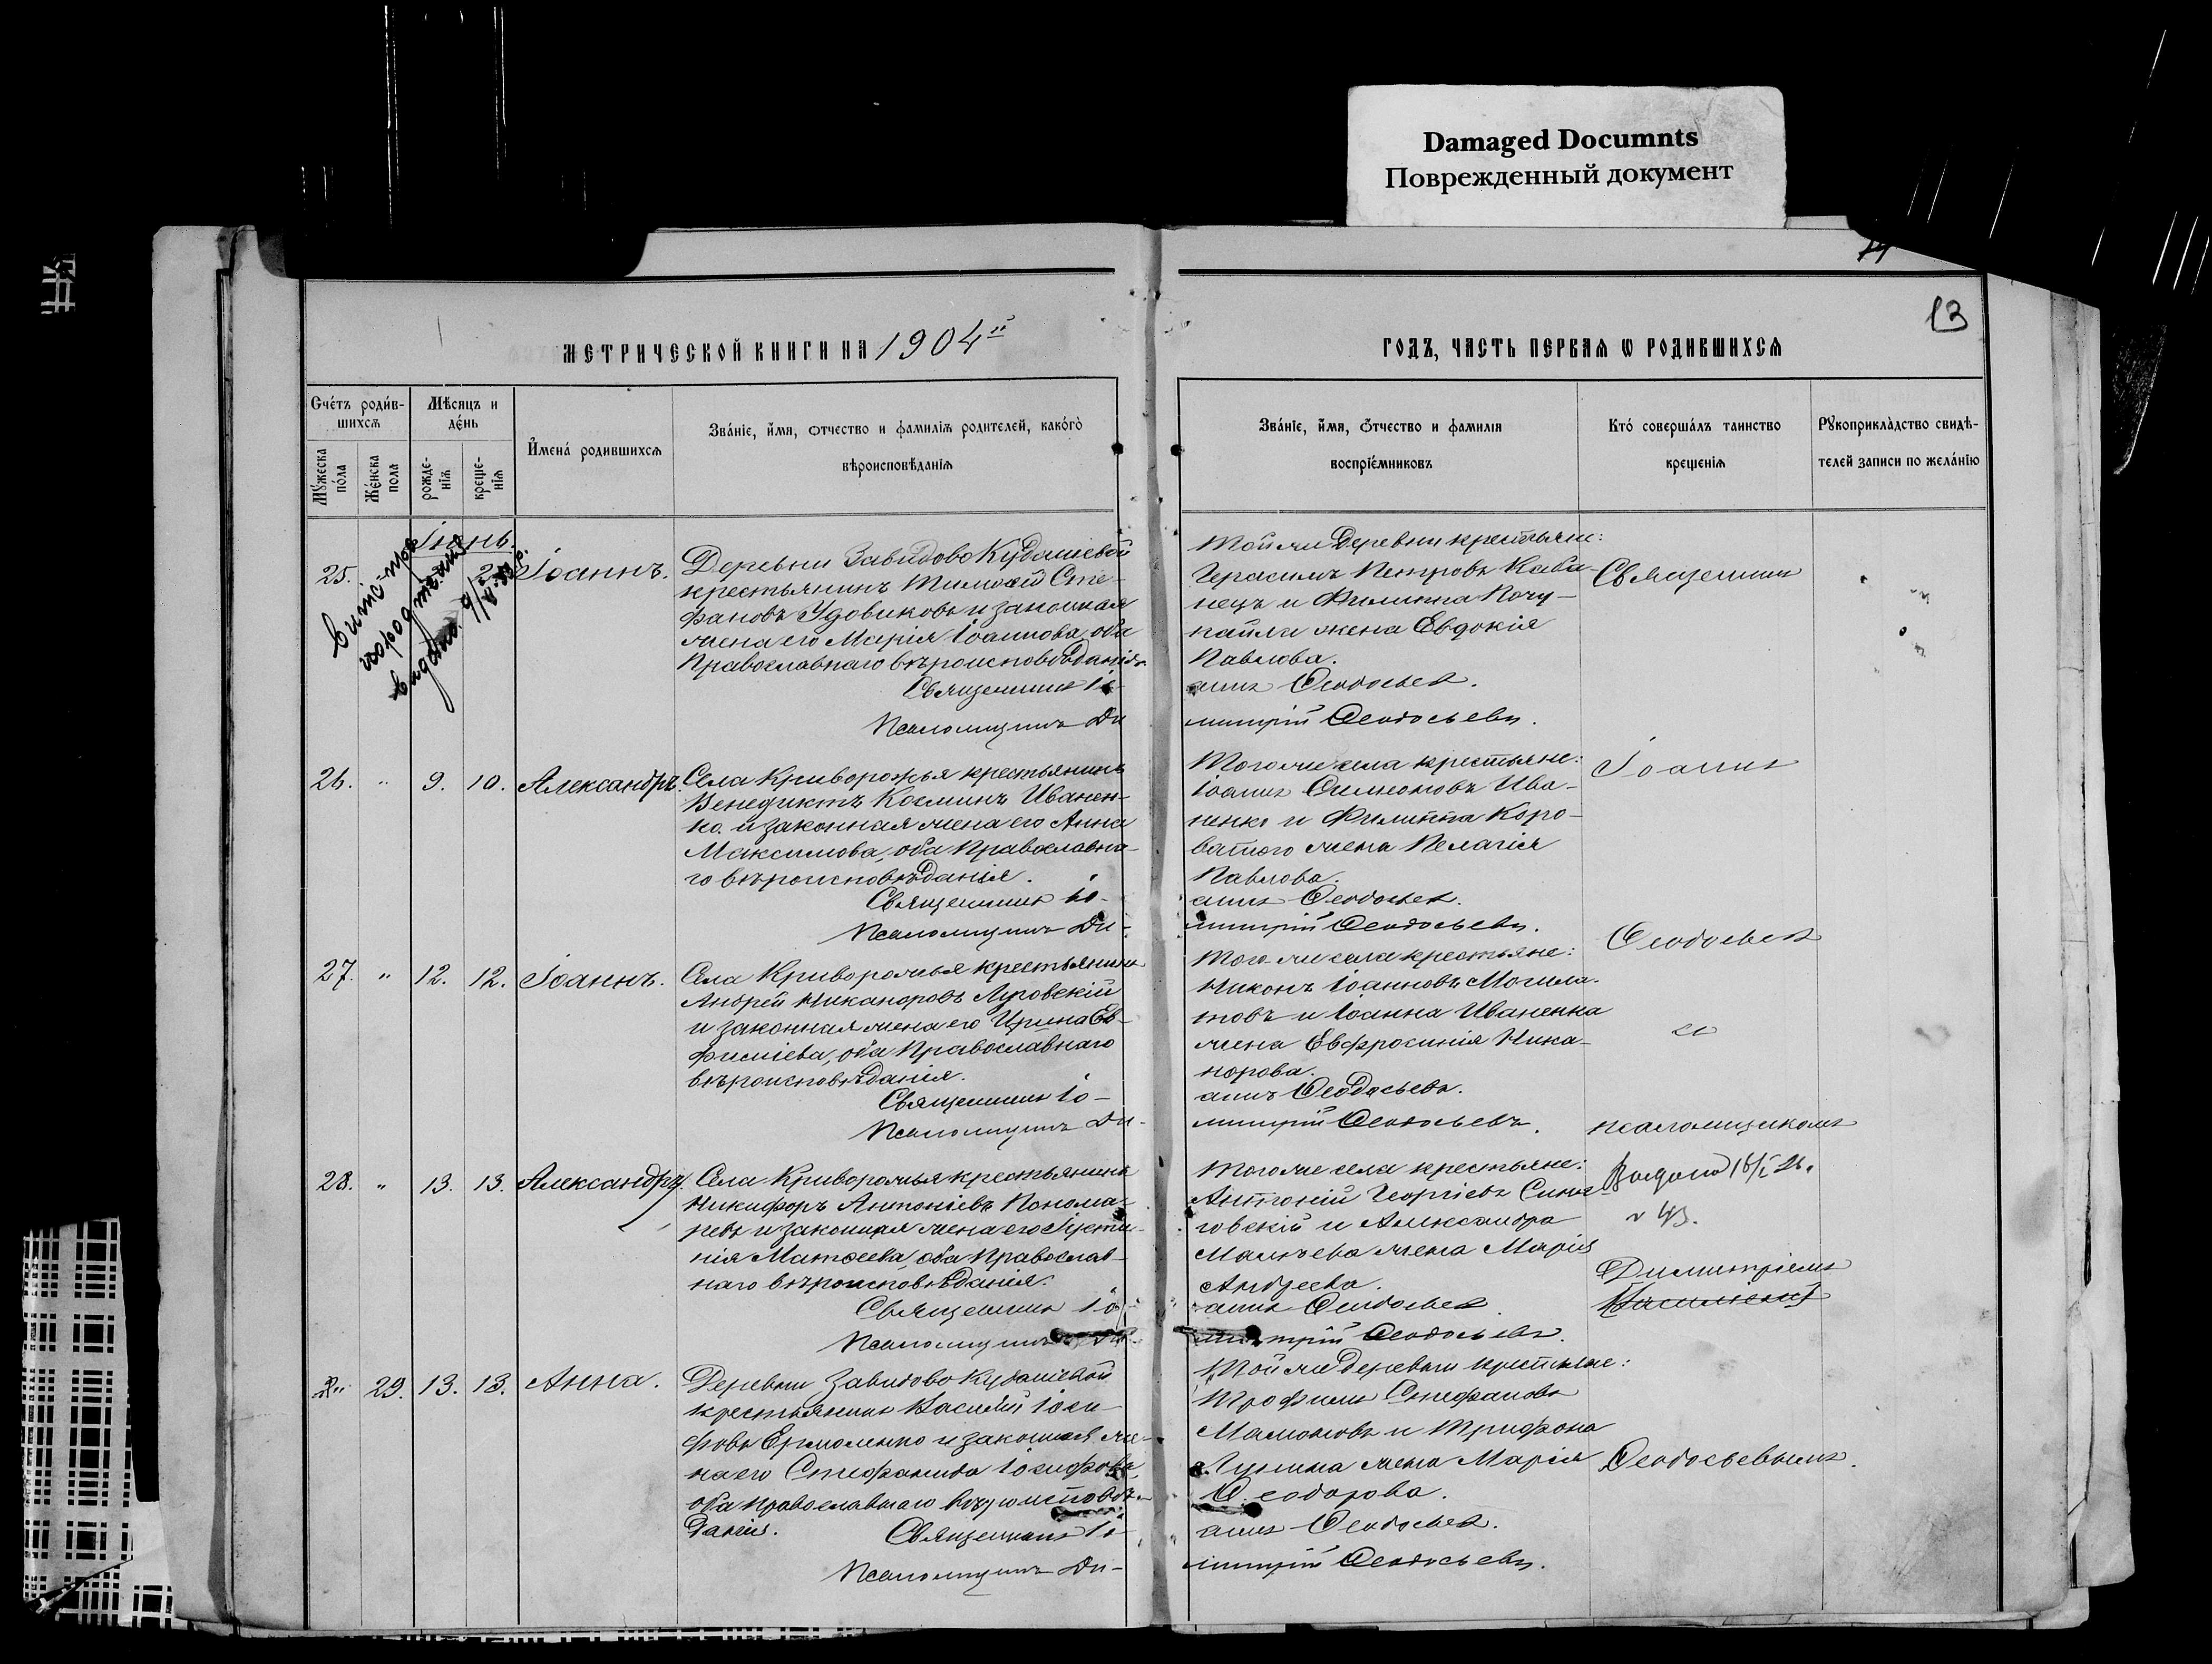 Damaged Documnts
Поврежденный документ
13
МЕТРИЧЕСКОЙ КНИГИ НА 1904й
ГОДЪ, ЧАСТЬ ПЕРВАЯ Ѡ РОДИВШИХСЯ
Счéтъ роди́в-
шихся
Мѣ́сяцъ и
де́нь
Му́жеска
по́ла
Же́нска
пола
рожде-
нія
креще-
нія
И҆мена́ родившихся
Зва́ніе, и҆́мя, ѻтчество и фамилія родителей, како́гѡ
вѣроисповѣ́данія
Зва́ніе, и҆́мя, ѻтчество и фамилія
воспріе́мниковъ
Кто́ соверша́лъ таинство
крещенія
Рꙋкоприкла́дство свидѣ́-
телей записи по жела́нію
Іюнь.
25.
Іоаннъ.
Деревни Завидово Кудашевой
крестьянинъ Тимоѳей Сте-
фановъ Удовиковъ и законная
жена его Марія Іоаннова, оба
Православнаго вѣроисповѣданія.
Священникъ Іо-
Псаломщикъ Ди
Той же деревни крестьяне:
Герасимъ Петровъ Каба-
нецъ и Филиппа Почу-
пайла жена Евдокія
Павлова.
аннъ Ѳеодосьевъ.
митрій Ѳеодосьевъ.
Священникъ
26. " 9. 10. Александръ.
Села Криворожья крестьянинъ
Венедиктъ Косминъ Иванен-
ко и законная жена его Анна
Максимова, оба Православна-
го вѣроисповѣданія.
Священникъ Іо-
Псаломщикъ Ди-
Того же села крестьяне:
Іоаннъ Симеоновъ Ива-
ненко и Филиппа Коро-
ватого жена Пелагія
Павлова.
аннъ Ѳеодосьевъ.
митрій Ѳеодосьевъ.
Іоаннъ
Ѳеодосьевъ
27. " 12. 12. Іоаннъ.
Села Криворожья крестьянинъ
Андрей Никаноровъ Луговскій
и законная жена его Ирина Ев-
фиміева, оба Православнаго
вѣроисповѣданія.
Священникъ Іо-
Псаломщикъ Ди-
Того же села крестьяне:
Никонъ Іоанновъ Могила-
товъ и Іоанна Иваненка
жена Евфросинія Ника-
норова.
аннъ Ѳеодосьевъ.
митрій Ѳеодосьевъ.
съ
псаломщикомъ
28. " 13. 13. Александръ.
Села Криворожья крестьянинъ
Никифоръ Антоніевъ Понома-
ревъ и законная жена его Іусти-
нія Матѳеева, оба Православ-
наго вѣроисповѣданія.
Священникъ Іо
Псаломщикъ Ди-
Того же села крестьяне:
Антоній Георгіевъ Синя-
говскій и Александра
жена Марія
Андреева.
аннъ Ѳеодосьевъ.
митрій Ѳеодосьевъ.
Димитріемъ
29. 13. 13. Анна.
Деревни Завидово Кудашевой
крестьянинъ Василій Іоси-
фовъ Ермоленко и законная же-
на его Стефанида Іосифова,
оба православнаго вѣроисповѣ-
данія.
Священникъ Іо
Псаломщикъ Ди-
Той же деревни крестьяне:
Трофимъ Стефановъ
Мамоновъ и Трифона
Лунина жена Марія
Ѳеодорова.
аннъ Ѳеодосьевъ.
митрій Ѳеодосьевъ.
Ѳеодосьевымъ.